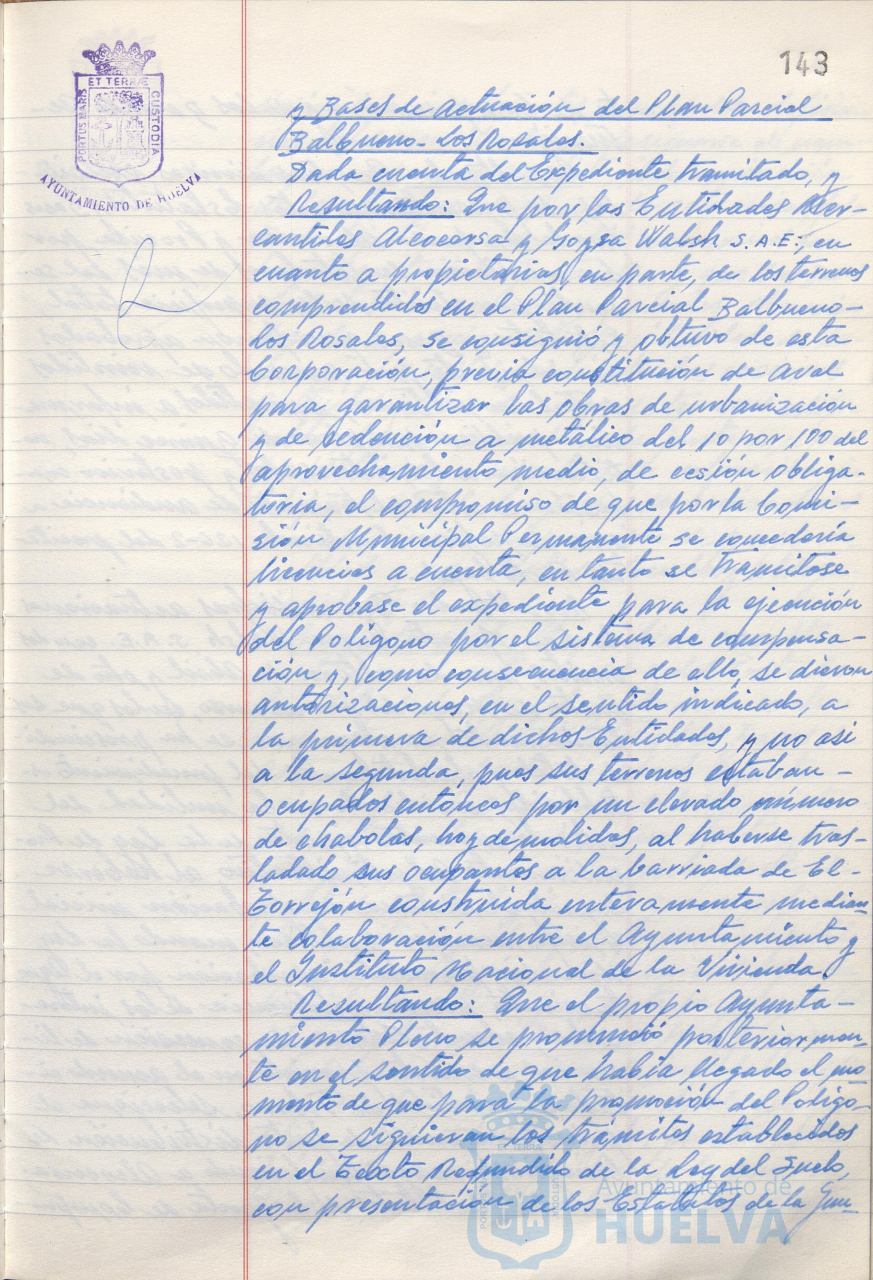 143
ET TERRÆ
PORTUS MARIS
CUSTODIA
AYUNTAMIENTO DE HUELVA
y Bases de actuación del Plan Parcial
Balbueno-Los Rosales.
Dada cuenta del Expediente tramitado, y
Resultando: Que por las Entidades Mer-
cantiles Alcocersa y Goysa Walsh S.A.E., en
cuanto a propietarias, en parte, de los terrenos
comprendidos en el Plan Parcial Balbueno-
Los Rosales, se consiguió y obtuvo de esta
Corporación, previa constitución de aval
para garantizar las obras de urbanización
y de redención a metálico del 10 por 100 del
aprovechamiento medio, de cesión obliga-
toria, el compromiso de que por la Comi-
sión Municipal Permanente se concedería
licencias a cuenta, en tanto se tramitase
y aprobase el expediente para la ejecución
del Polígono por el sistema de compensa-
ción y, como consecuencia de ello, se dieron
autorizaciones, en el sentido indicado, a
la primera de dichas Entidades, y no asi
a la segunda, pues sus terrenos estaban-
ocupados entonces por un elevado número
de chabolas, hoy demolidas, al haberse tras-
ladado sus ocupantes a la barriada de El-
Torrejón construida enteramente median-
te colaboración entre el Ayuntamiento y
el Instituto Nacional de la Vivienda.
Resultando: Que el propio Ayunta-
miento Pleno se pronunció posteriormen-
te en el sentido de que había llegado el mo-
mento de que para la promoción del Polígo-
no se siguieran los trámites establecidos
en el Texto Refundido de la Ley del Suelo,
con presentación de los Estatutos de la Jun-
Ayuntamiento de
HUELVA